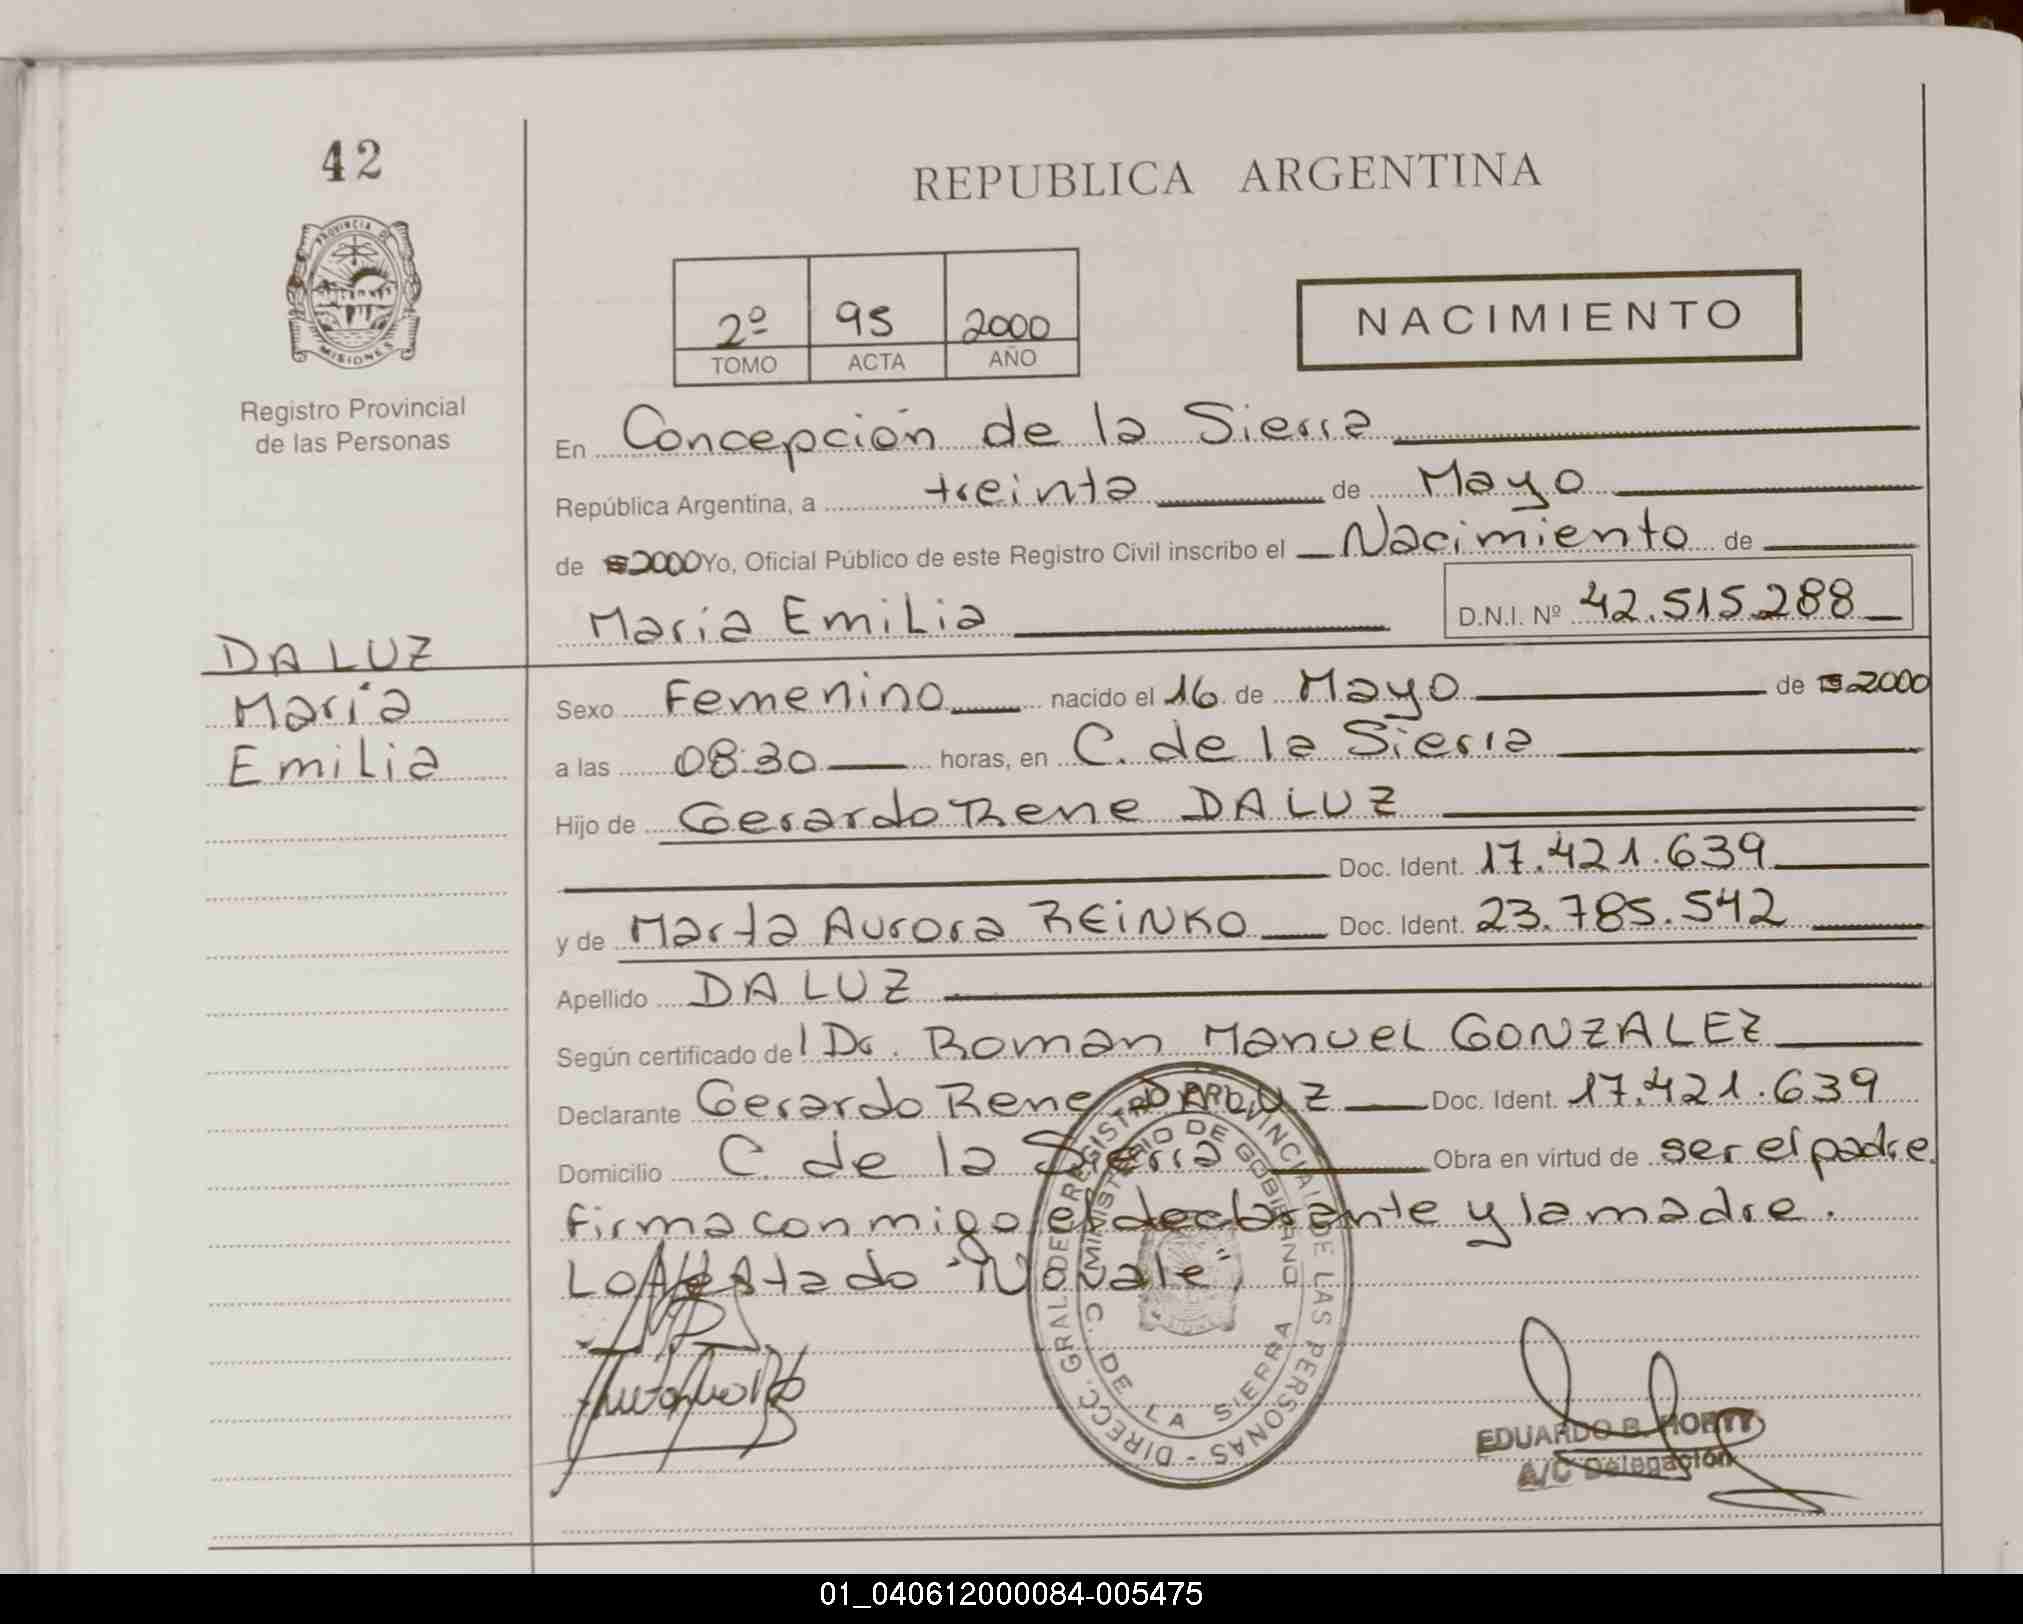 42
REPUBLICA ARGENTINA
PROVINCIA DE
MISIONES
Registro Provincial
de las Personas
2º 95 2000
TOMO ACTA AÑO
NACIMIENTO
En Concepción de la Sierra
República Argentina, a treinta de Mayo
de 2000 Yo, Oficial Público de este Registro Civil inscribo el Nacimiento de
Maria Emilia D.N.I. Nº 42.515.288
DA LUZ
María
Emilia
Sexo Femenino nacido el 16 de Mayo de 2000
a las 08:30 horas, en C. de la Sierra
Hijo de Gerardo Rene DA LUZ
Doc. Ident. 17.421.639
y de Marta Aurora REINKO Doc. Ident. 23.785.542
Apellido DA LUZ
Según certificado del Dr. Roman Manuel GONZALEZ
Declarante Gerardo Rene DA LUZ Doc. Ident. 17.421.639
Domicilio C. de la Sierra Obra en virtud de ser el padre.
Firma conmigo el declarante y la madre.
Lo testado "No vale".
DIRECC. GRAL DE REGISTRO PROVINCIAL DE LAS PERSONAS -
MINISTERIO DE GOBIERNO
C. DE LA SIERRA
EDUARDO B.
A/C Delegación
01_040612000084-005475